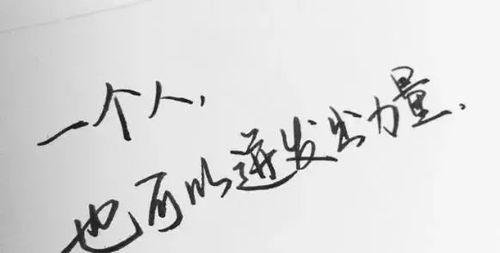 一个人,
也可以迸发出力量.